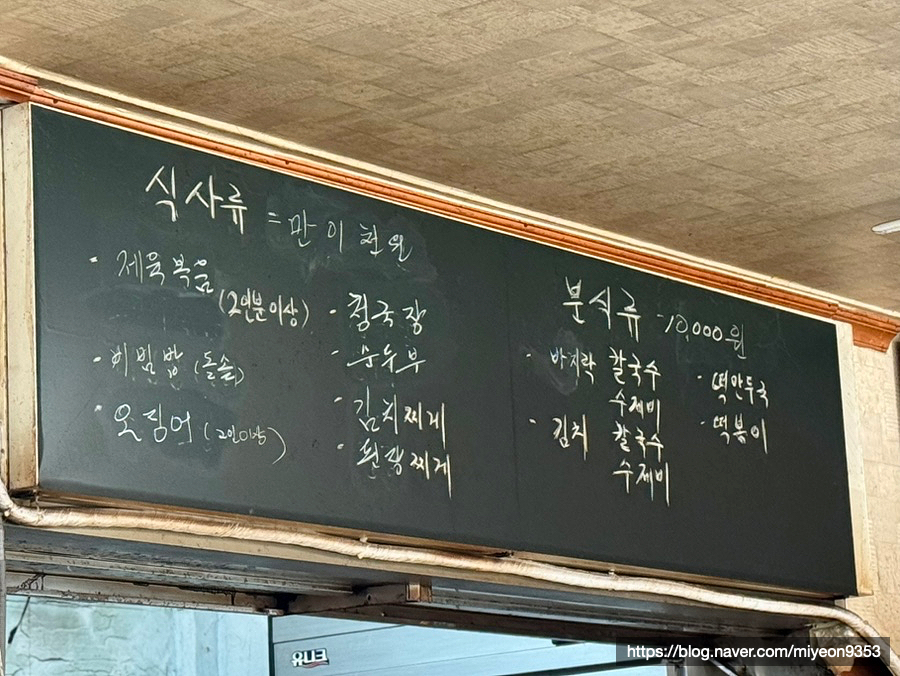 식사류 = 만이천원
· 제육볶음
(2인분이상)
· 비빔밥 (돌솥)
· 오징어 (2인이상)
· 청국장
· 순두부
· 김치찌게
· 된장찌게
분식류 - 10,000원
· 바지락 칼국수
수제비
· 김치 칼국수
수제비
· 떡만두국
· 떡볶이
유니크
https://blog.naver.com/miyeon9353